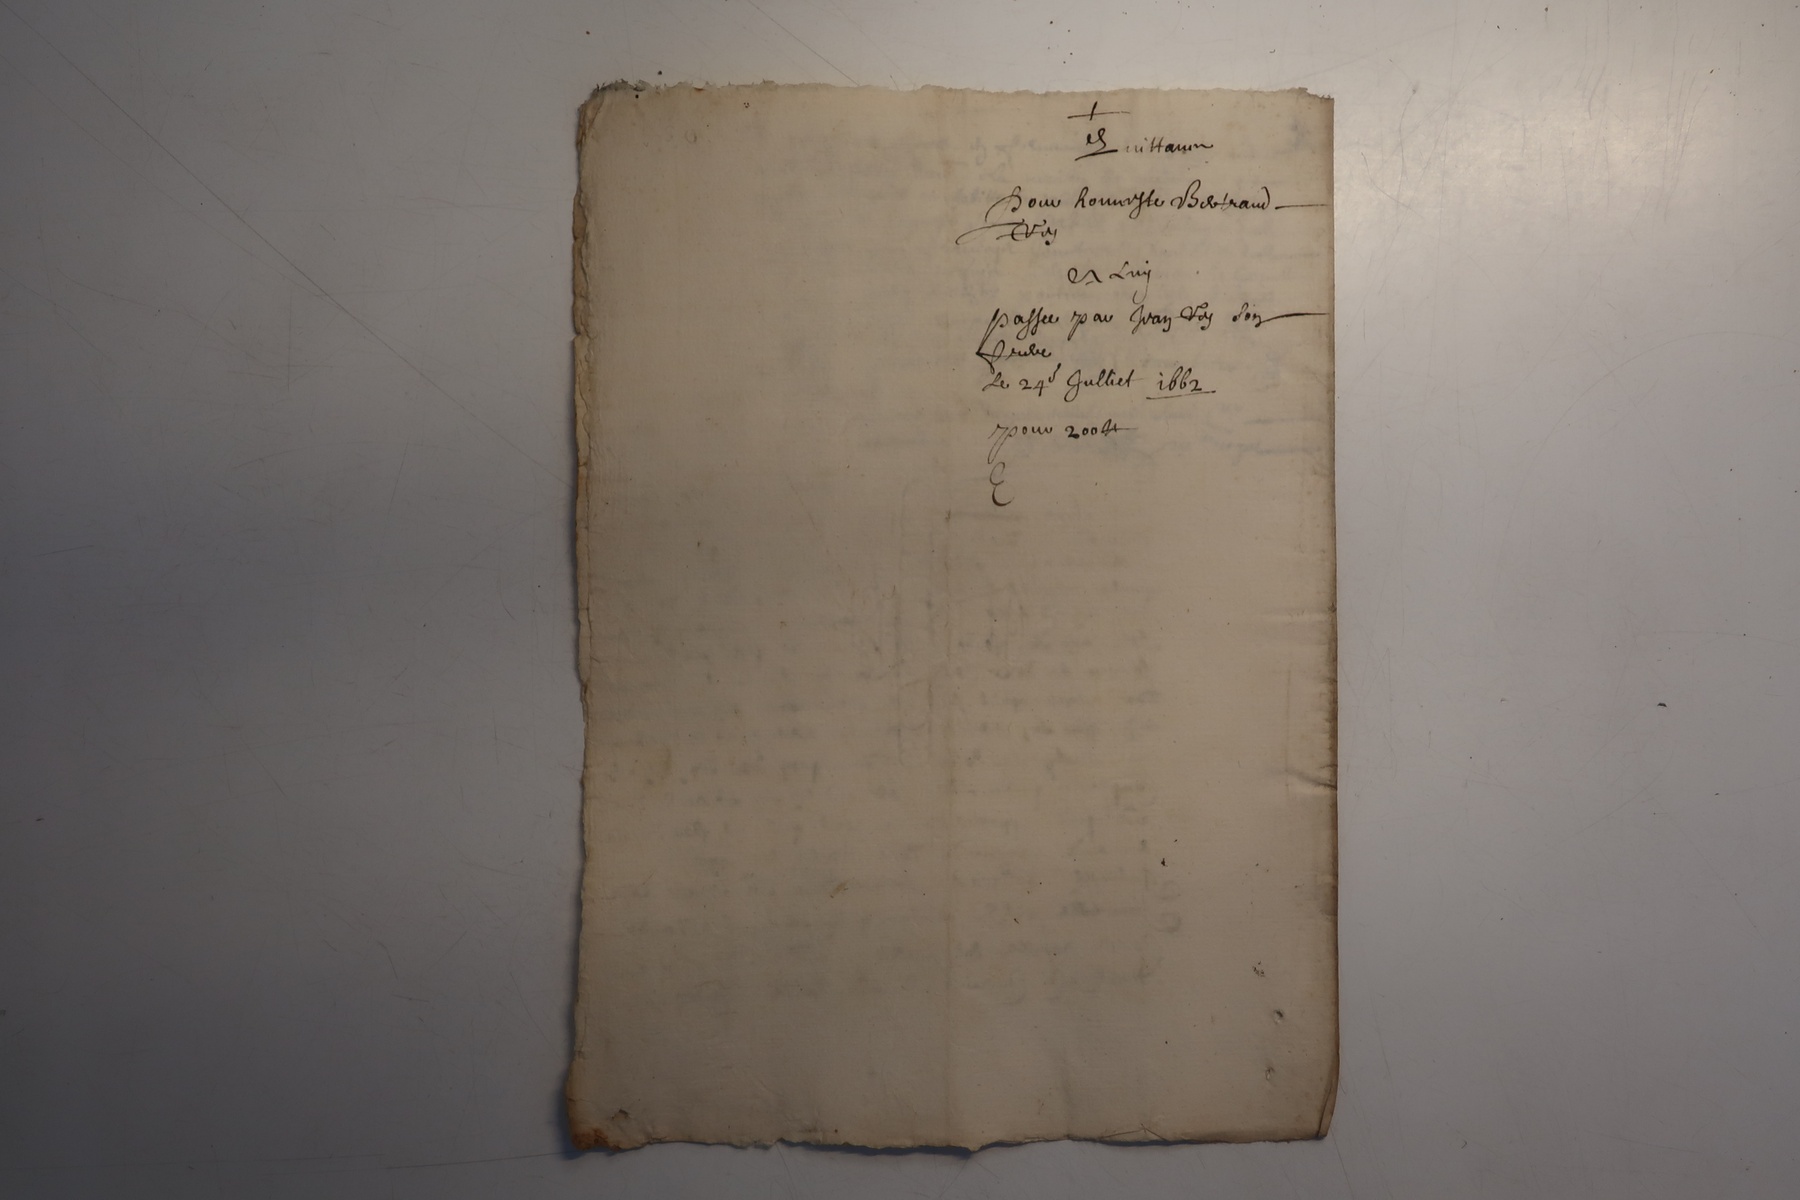 +
Quittance
pour honneste Bertrand
Vey
A Luy
passee par Jean Vey son
frere
Le 24e Julliet 1662
pour 200 lt